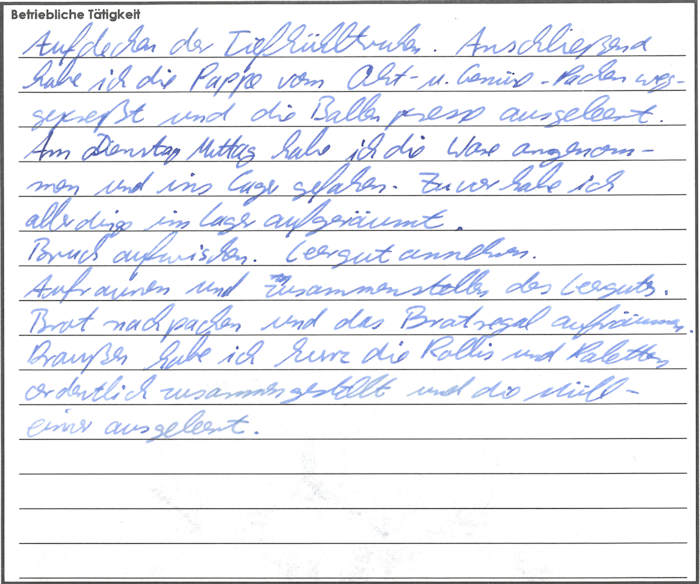 Betriebliche Tätigkeit
Aufdecken der Tiefkühltruhen. Anschließend
habe ich die Pappe vom Obst- u. Gemüse-Packen weg-
gepreßt und die Ballenpresse ausgeleert.
Am Dienstag Mittag habe ich die Ware angenom-
men und ins Lager gefahren. Zuvor habe ich
allerdings im Lager aufgeräumt.
Bruch aufwischen. Leergut annehmen.
Aufräumen und Zusammenstellen des Leergutes.
Brot nachpacken und das Brotregal aufräumen.
Draußen habe ich kurz die Rollis und Paletten
ordentlich zusammengestellt und die Müll-
eimer ausgeleert.